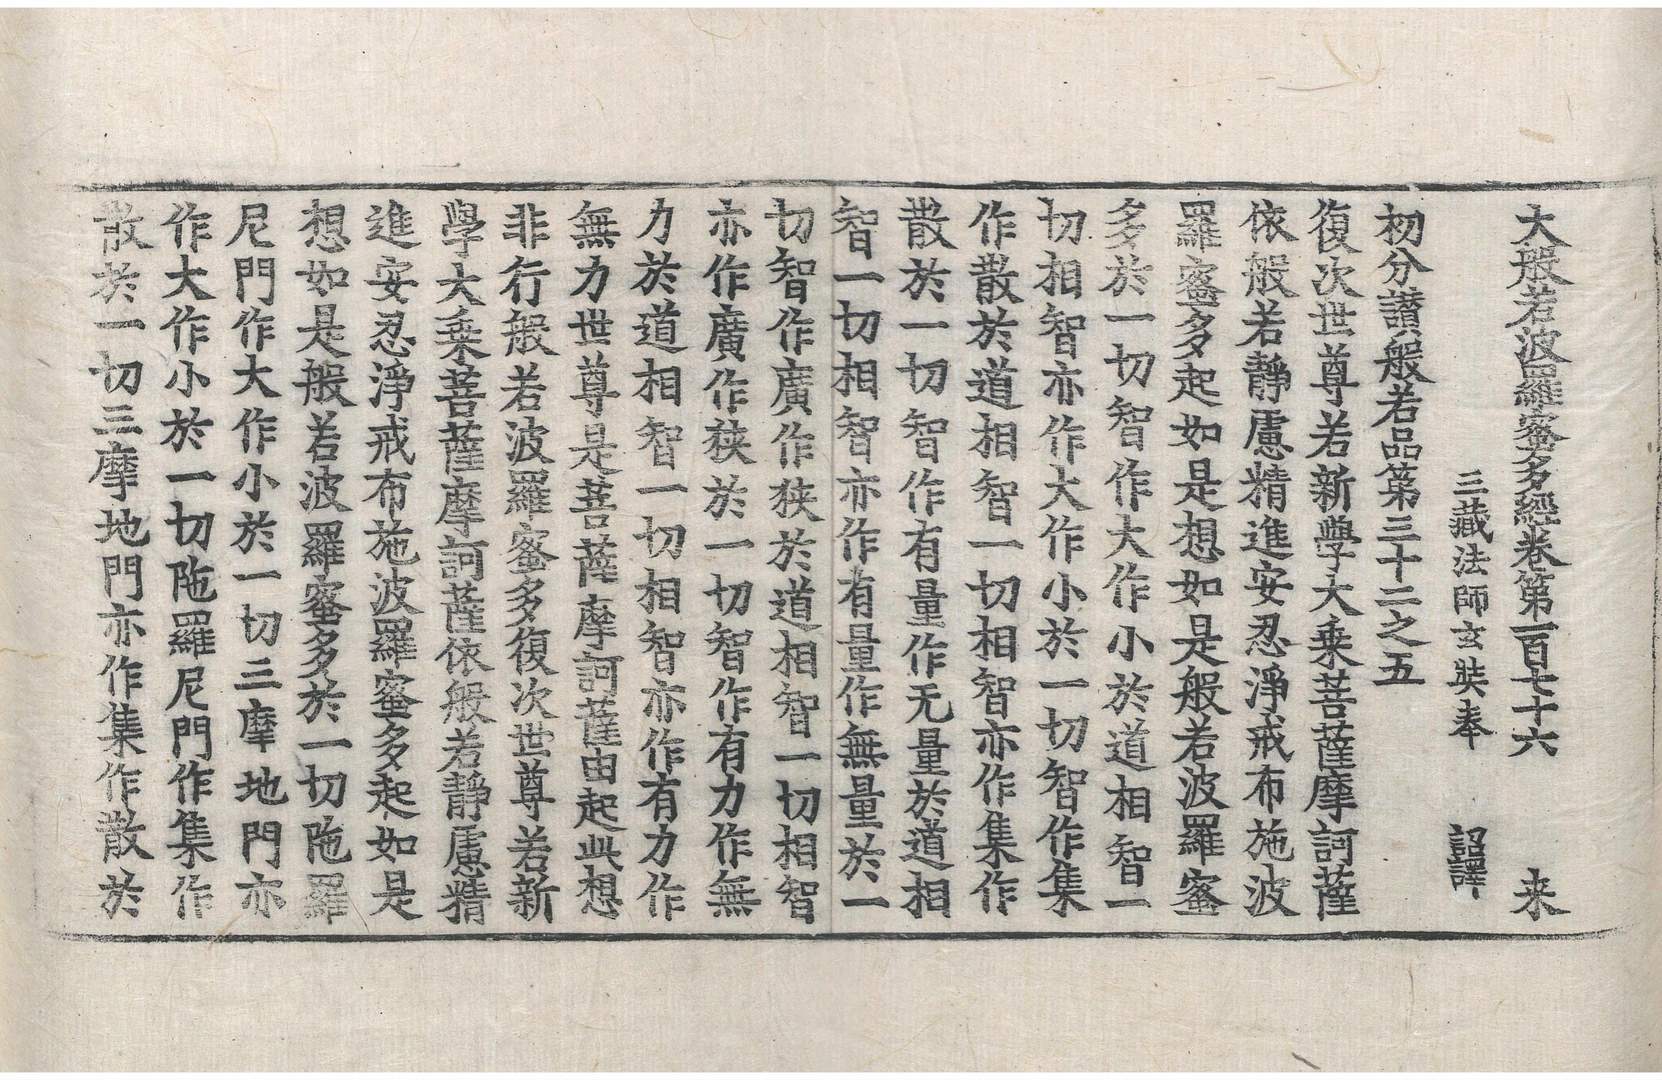 大般若波羅蜜多經卷第一百七十六　来
三藏法師玄奘奉　詔譯
初分讃般若品第三十二之五
復次世尊若新學大乗菩薩摩訶薩
依般若靜慮精進安忍淨戒布施波
羅蜜多起如是想如是般若波羅蜜
多於一切智作大作小於道相智一
切相智亦作大作小於一切智作集
作散於道相智一切相智亦作集作
散於一切智作有量作无量於道相
智一切相智亦作有量作無量於一
切智作廣作狹於道相智一切相智
亦作廣作狹於一切智作有力作無
力於道相智一切相智亦作有力作
無力世尊是菩薩摩訶薩由起此想
非行般若波羅蜜多復次世尊若新
學大乗菩薩摩訶薩依般若靜慮精
進安忍淨戒布施波羅蜜多起如是
想如是般若波羅蜜多於一切陁羅
尼門作大作小於一切三摩地門亦
作大作小於一切陁羅尼門作集作
散於一切三摩地門亦作集作散於